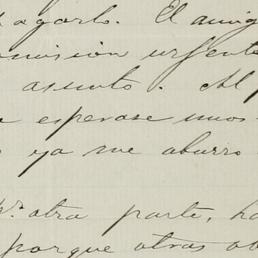 pagarlo. El amig
omisión urgente
asunto. Al p
esperase unos
ya me aburro
Pr. otra parte, ha
porque otras ob